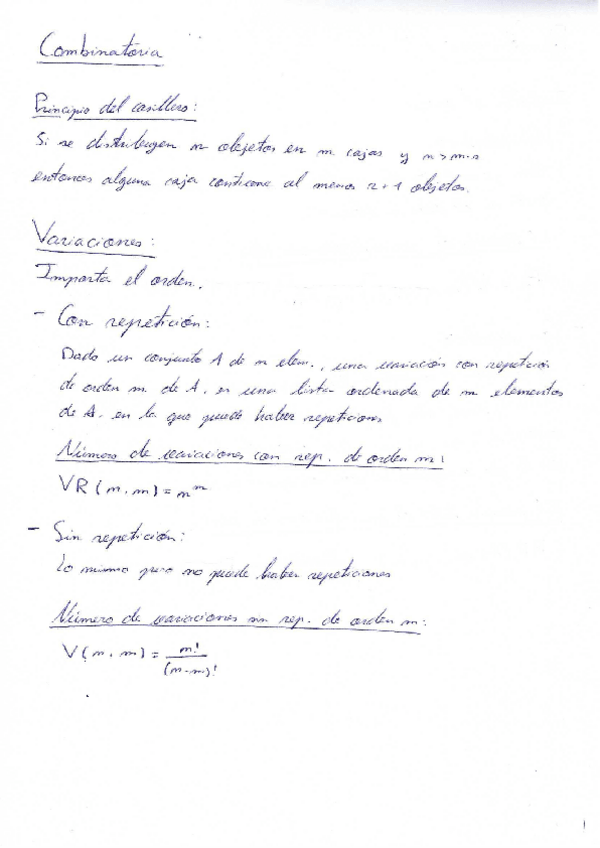 Combinatoria
Principio del casillero:
Si se distribuyen n objetos en m cajas y n > m·r
entonces alguna caja contiene al menos r+1 objetos.
Variaciones:
Importa el orden.
- Con repetición:
Dado un conjunto A de n elem., una variación con repetición
de orden m de A, es una lista ordenada de m elementos
de A, en la que puede haber repeticiones
Número de variaciones con rep. de orden m:
VR (n, m) = n^m
- Sin repetición:
Lo mismo pero no puede haber repeticiones
Número de variaciones sin rep. de orden m:
V (n, m) = n! / (n-m)!